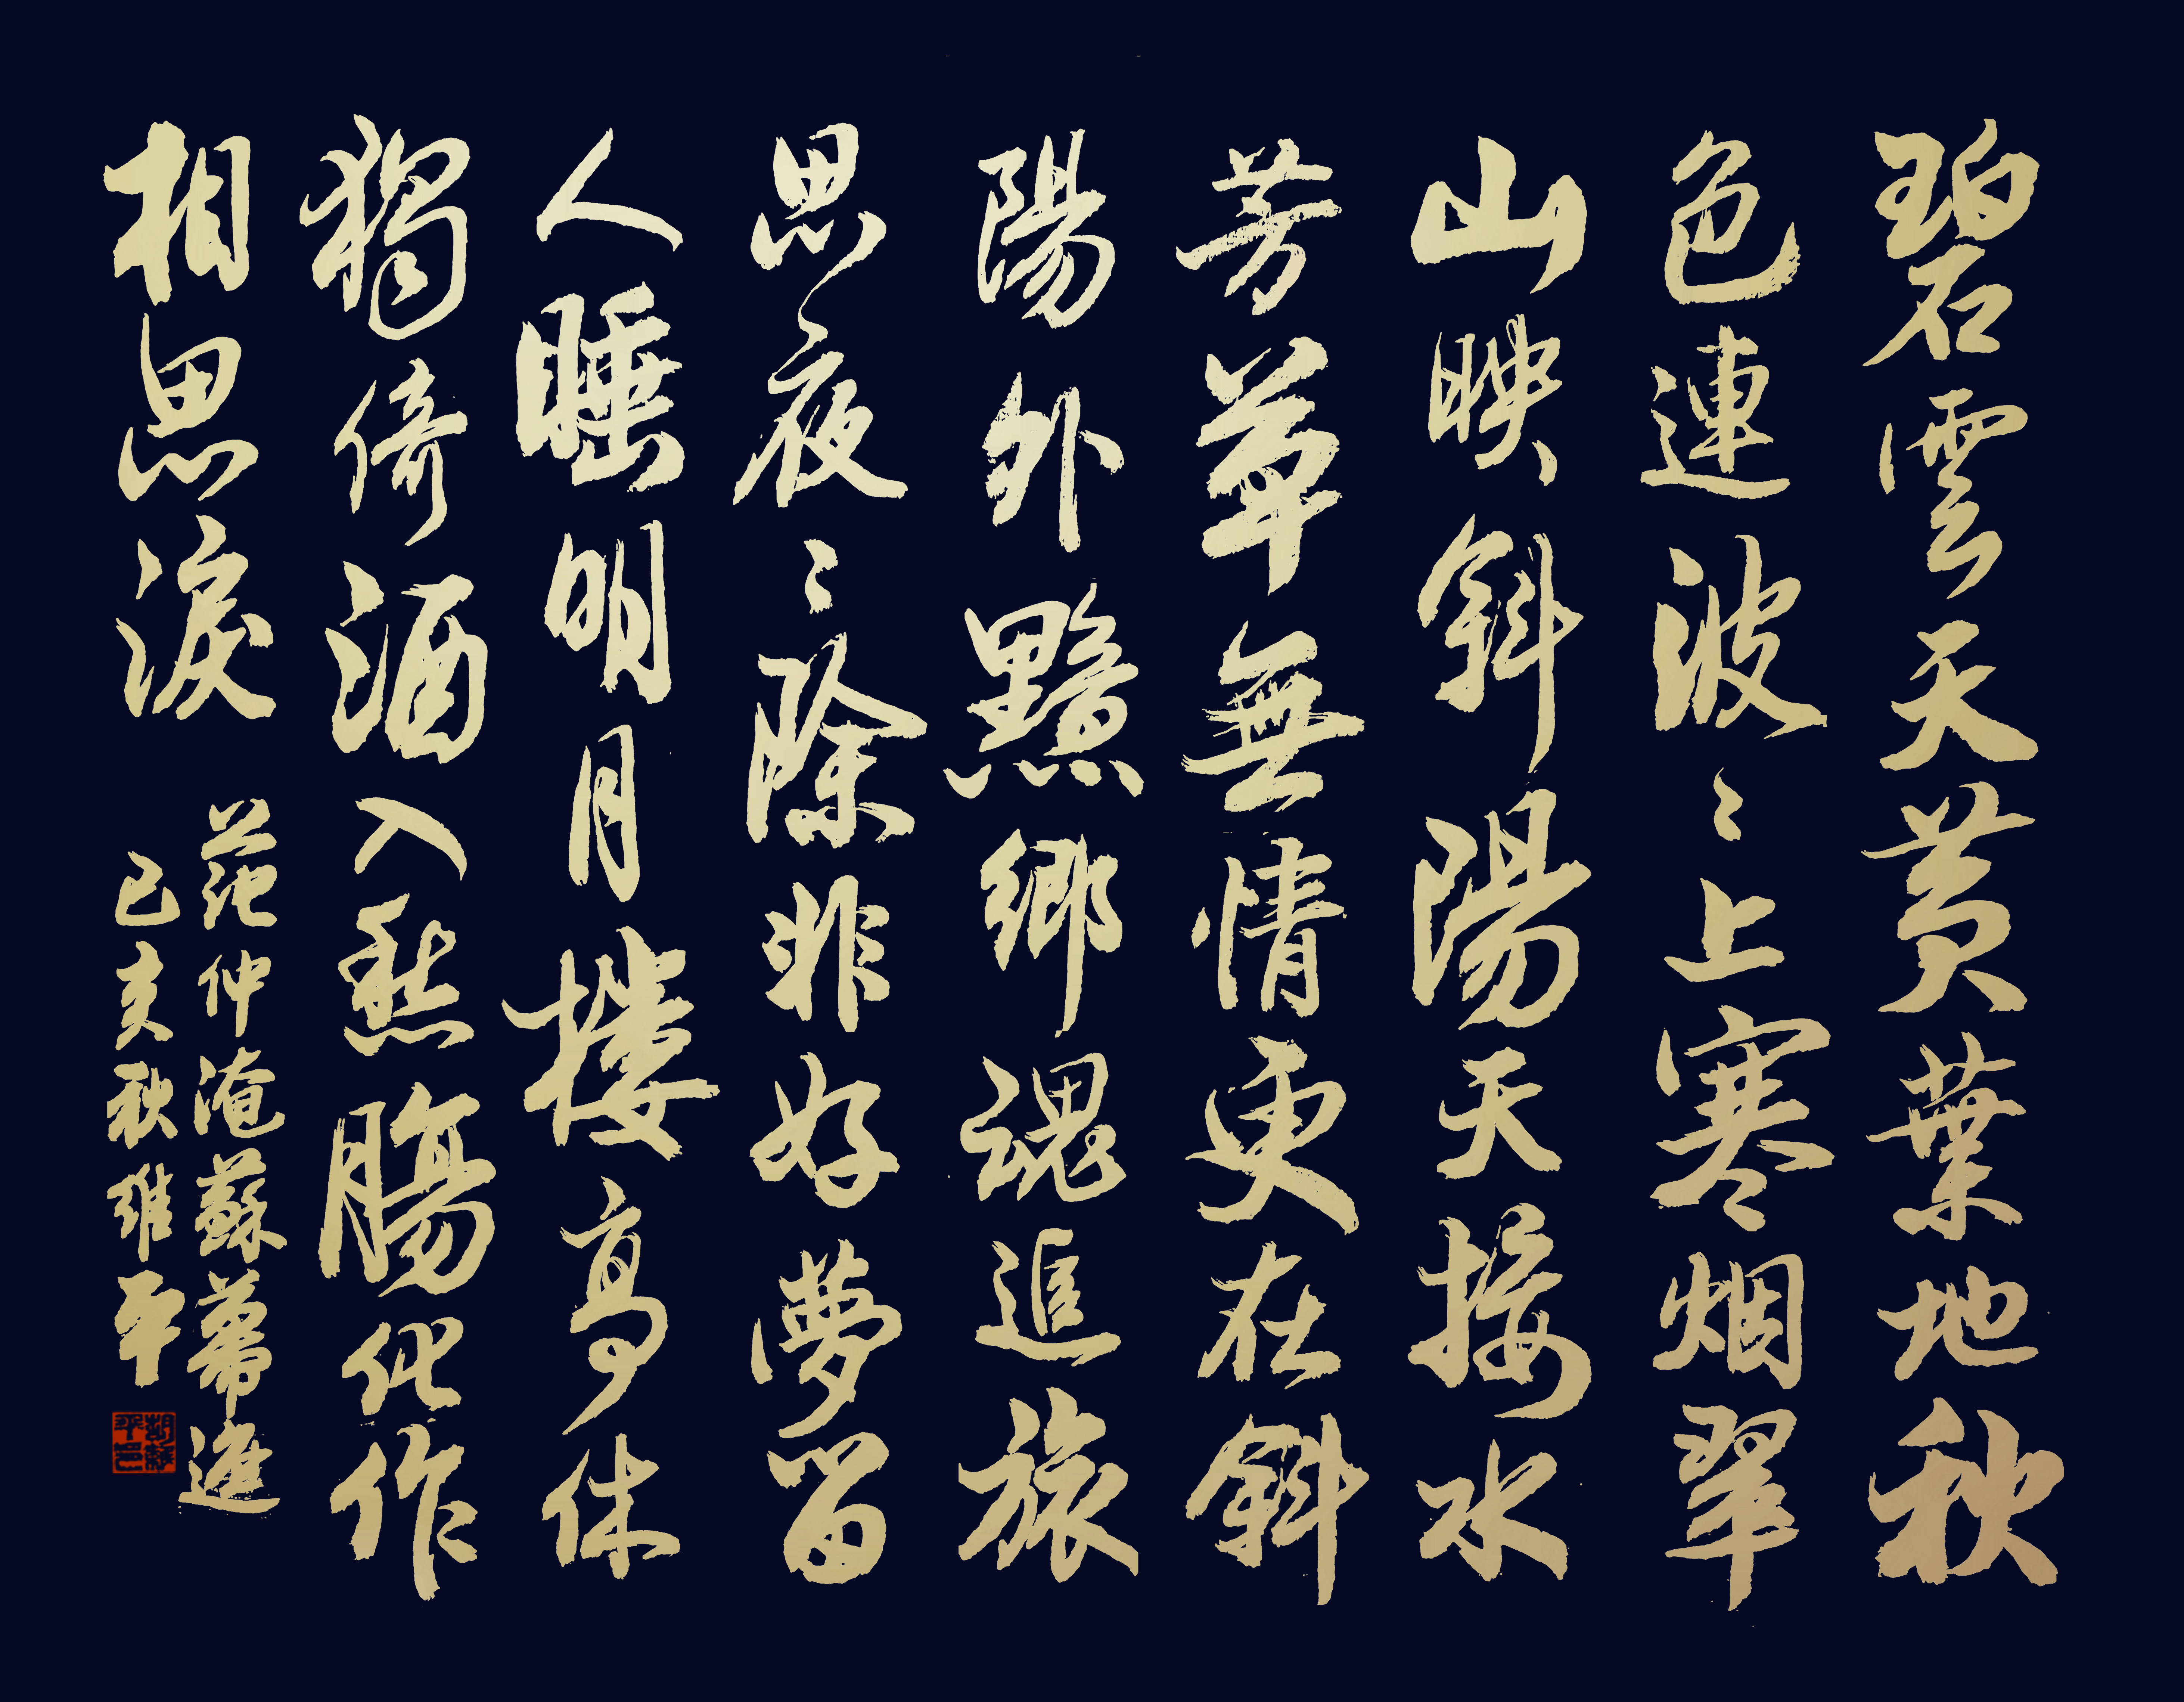 碧雲天黃葉地秋
色連波〻上寒烟翠
山映斜陽天接水
芳草無情更在斜
陽外黯鄉魂追旅
思夜〻除非好夢留
人睡明月樓高休
獨倚酒入愁腸化作
相思淚
范仲淹蘇幕遮
己亥秋維平